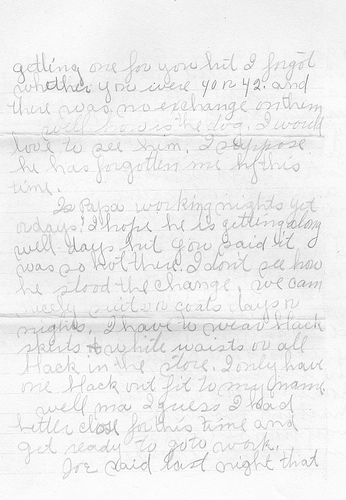 getting one for you but I forgot
whether you were 40 or 42. and
there was no exchange on them
well how is the dog. I would
love to see him, I suppose
he has forgotten me by this
time.
Is Papa working nights yet
or days? I hope he is getting along
well days but you said it
was so hot there. I don't see how
he stood the change. we cam
suits or coats days or
nights. I have to wear black
skirts & white waists or all
black in the store. I only have
one black out fit to my name.
well ma I guess I had
better close for this time and
get ready to go to work.
Joe said last night that